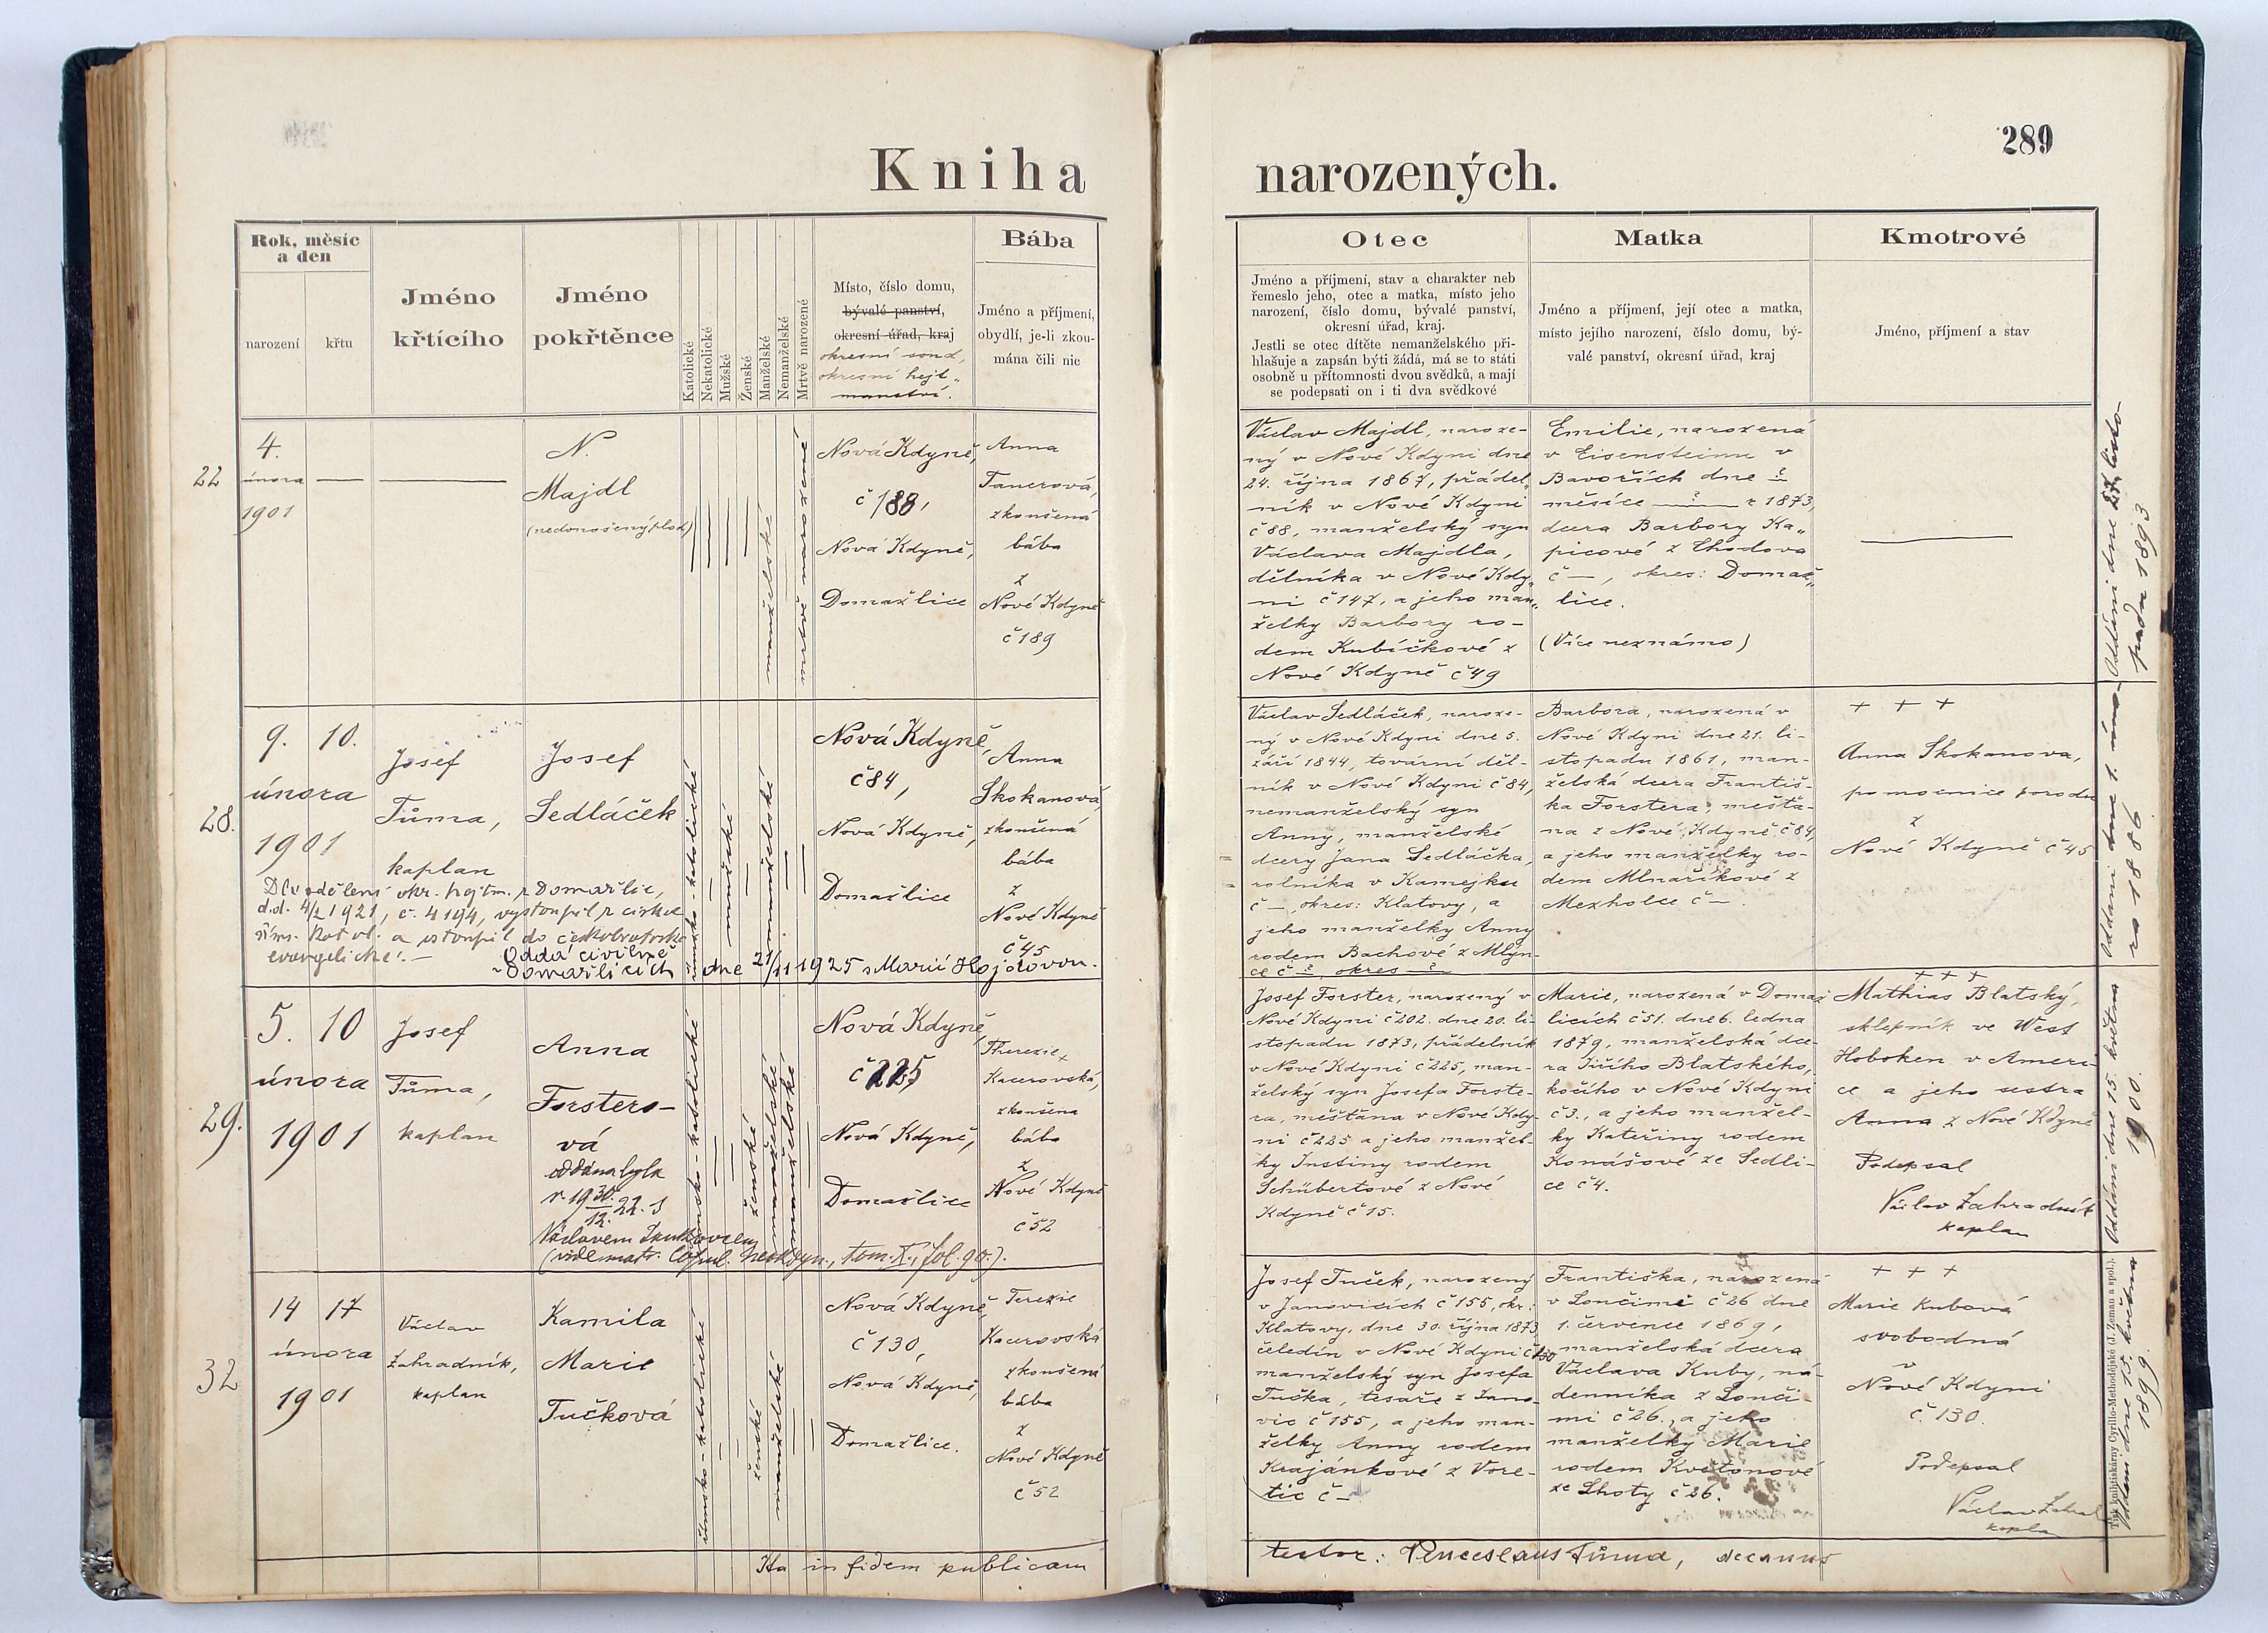 Kniha
narozených.
289
Rok, měsíc
a den
narození
křtu
Jméno
křtícího
Jméno
pokřtěnce
Katolické
Nekatolické
Mužské
Ženské
Manželské
Nemanželské
Mrtvě narozené
Místo, číslo domu,
bývalé panství,
okresní úřad, kraj
okresní soud,
okresní hejt„
manství.
Bába
Jméno a příjmení,
obydlí, je-li zkou-
mána čili nic
Otec
Jméno a příjmení, stav a charakter neb
řemeslo jeho, otec a matka, místo jeho
narození, číslo domu, bývalé panství,
okresní úřad, kraj.
Jestli se otec dítěte nemanželského při-
hlašuje a zapsán býti žádá, má se to státi
osobně u přítomnosti dvou svědků, a mají
se podepsati on i ti dva svědkové
Matka
Jméno a příjmení, její otec a matka,
místo jejího narození, číslo domu, bý-
valé panství, okresní úřad, kraj
Kmotrové
Jméno, příjmení a stav
22
4.
února
1901
N.
Majdl
(nedonošený plod)
manželské
mrtvě narozené
Nová Kdyně,
č 188,
Nová Kdyně,
Domažlice
Anna
Tauerová,
zkoušená
bába
z
Nové Kdyně
č 189
Václav Majdl, naroze-
ný v Nové Kdyni dne
24. října 1867, přádel„
ník v Nové Kdyni
č 88, manželský syn
Václava Majdla,
dělníka v Nové Kdy„
ni č 147, a jeho man„
želky Barbory ro-
dem Kubíčkové z
Nové Kdyně č 49
Emilie, narozená
v Eisensteinu v
Bavořích dne ?
měsíce ? r 1873,
dcera Barbory Ka„
picové z Chodova
č —, okres: Domaž„
lice.
(Více neznámo)
Oddáni dne 27. listo-
padu 1893
28.
9. 10.
února
1901
Josef
Tůma,
kaplan
Josef
Sedláček
římsko-katolické
mužské
manželské
Nová Kdyně,
č 84,
Nová Kdyně,
Domažlice
Anna
Skokanová,
zkoušená
bába
z
Nové Kdyně
č 45
Dle sdělení okr. hejtm. z Domažlic,
d.d. 4/2 1921, č. 4194, vystoupil z církve
řím. katol. a vstoupil do českobratrské
evangelické. —
Oddá civilně
v Domažlicích dne 21/11 1925 s Marií Hojdovou.
Václav Sedláček, naroze-
ný v Nové Kdyni dne 5.
září 1844, tovární děl-
ník v Nové Kdyni č 84,
nemanželský syn
Anny, manželské
dcery Jana Sedláčka,
rolníka v Kamejku
č —, okres: Klatovy, a
jeho manželky Anny
rodem Bachové z Mlýn-
ce č ?, okres ?
Barbora, narozená v
Nové Kdyni dne 21. li-
stopadu 1861, man-
želská dcera Františ-
ka Forstera, měšťa-
na z Nové Kdyně č 84,
a jeho manželky ro-
dem Mlnaříkové z
Mezholce č —.
+ + +
Anna Skokanova,
pomocnice porodu
z
Nové Kdyně č 45
Oddáni dne 1. úno-
ra 1886
29.
5. 10
února
1901
Josef
Tůma,
kaplan
Anna
Forstero-
vá
oddána byla
r. 1930
12. 22. s
Václavem
(vide matr. Copul. Neokdyn., tom. X., fol. 90.).
římsko-katolické
ženské
manželské
Nová Kdyně,
č 225
Nová Kdyně,
Domažlice
Therezie
Kacerovská,
zkoušena
bába
z
Nové Kdyně
č 52
Josef Forster, narozený v
Nové Kdyni č 202. dne 20. li-
stopadu 1873, přádelník
v Nové Kdyni č 225, man-
želský syn Josefa Forste-
ra, měšťana v Nové Kdy-
ni č 225 a jeho manžel-
ky Justiny rodem
Schübertové z Nové
Kdyně č 15.
Marie, narozená v Domaž
licích č 51. dne 6. ledna
1879, manželská dce-
ra Jiřího Blatského,
kočího v Nové Kdyni
č 3., a jeho manžel-
ky Kateřiny rodem
Konášové ze Sedli-
ce č 4.
+ + +
Mathias Blatský,
sklepník ve West
Hoboken v Ameri-
ce a jeho sestra
Anna z Nové Kdyně
Podepsal
Václav Zahradník
kaplan
Oddáni dne 15. května
1900.
32
14 17
února
1901
Václav
Zahradník,
kaplan
Kamila
Marie
Tučková
římsko-katolické
ženské
manželské
Nová Kdyně,
č 130,
Nová Kdyně,
Domažlice.
Terezie
Kacerovská
zkoušená
bába
z
Nové Kdyně
č 52
Josef Tuček, narozený
v Janovicích č 155, okr.:
Klatovy, dne 30. října 1873,
čeledín v Nové Kdyni č 130
manželský syn Josefa
Tučka, tesaře z Jano-
vic č 155, a jeho man-
želky Anny rodem
Krajánkové z Vore-
tic č —
Františka, narozená
v Loučimě č 26 dne
1. července 1869,
manželská dcera
Václava Kuby, ná-
denníka z Loučí-
mi č 26., a jeho
manželky Marie
rodem Květonové
ze Lhoty č 26.
+ + +
Marie Kubová
svobodná
v
Nové Kdyni
č. 130.
Podepsal
Václav Zahrad
kapla
Oddáni dne 15. května
1899.
Tisk knihtiskárny Cyrillo-Methodějské (J. Zeman a spol.).
Ita in fidem publicam
testor: Venceslaus Tůma, decanus